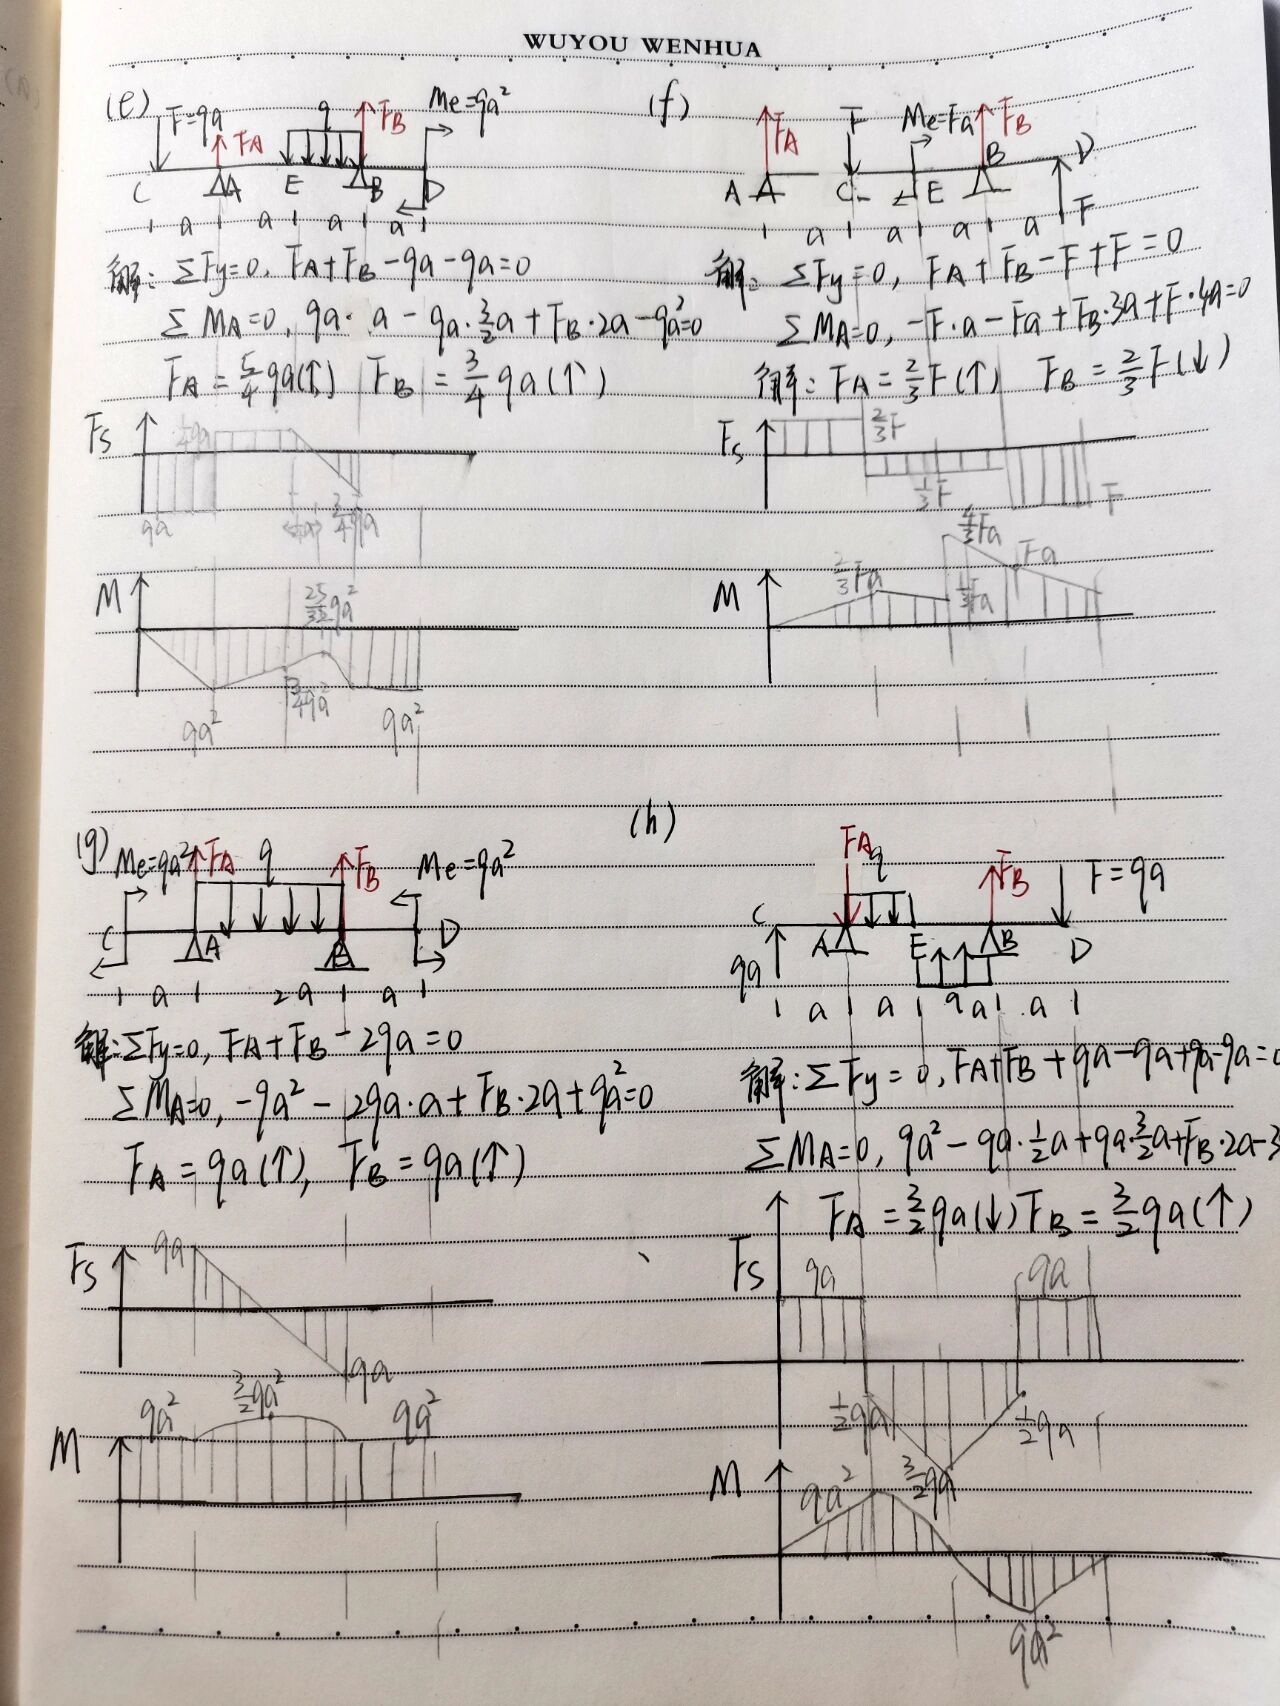 WUYOU WENHUA
(e) F=qa FA q FB Me=qa²
C A E B D
a a a a
解: ΣFy=0, FA+FB-qa-qa=0
ΣMA=0, qa·a-qa·3/2a+FB·2a-qa²=0
FA=5/4qa(↑) FB=3/4qa(↑)
Fs 1/4qa
qa 3/4qa
M 25/32qa²
qa² 3/4qa² qa²
(f) FA F Me=Fa FB
A C E B D F
a a a a
解: ΣFy=0, FA+FB-F+F=0
ΣMA=0, -F·a-Fa+FB·3a+F·4a=0
解: FA=2/3F(↑) FB=2/3F(↓)
Fs 2/3F
1/3F F
M 2/3Fa 4/3Fa Fa
1/3Fa
(g) Me=qa² FA q FB Me=qa²
C A B D
a 2a a
解: ΣFy=0, FA+FB-2qa=0
ΣMA=0, -qa²-2qa·a+FB·2a+qa²=0
FA=qa(↑), FB=qa(↑)
Fs qa
qa
M qa² 3/2qa² qa²
(h) FA q FB F=qa
C A E B D
qa
a a a a
解: ΣFy=0, FA+FB+qa-qa+qa-qa=0
ΣMA=0, qa²-qa·1/2a+qa·3/2a+FB·2a-3
FA=3/2qa(↓) FB=3/2qa(↑)
Fs qa qa
1/2qa 3/2qa 1/2qa
M qa²
qa²